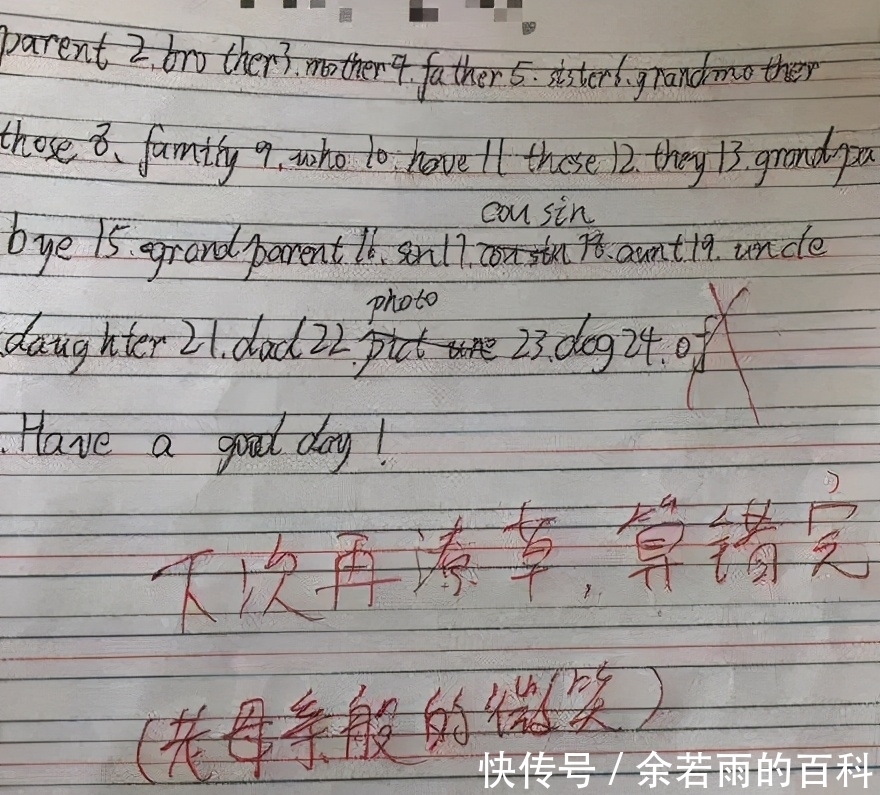 parent 2. brother 3. mother 4. father 5. sister 6. grandmother
those 8. family 9. who 10. have 11 these 12. they 13. grandpa
cousin
bye 15. grandparent 16. son 17. cousin 18. aunt 19. uncle
photo
daughter 21. dad 22. picture 23. dog 24. of
Have a good day!
下次再潦草,算错完
(老母亲般的微笑)
快传号 / 余若雨的百科